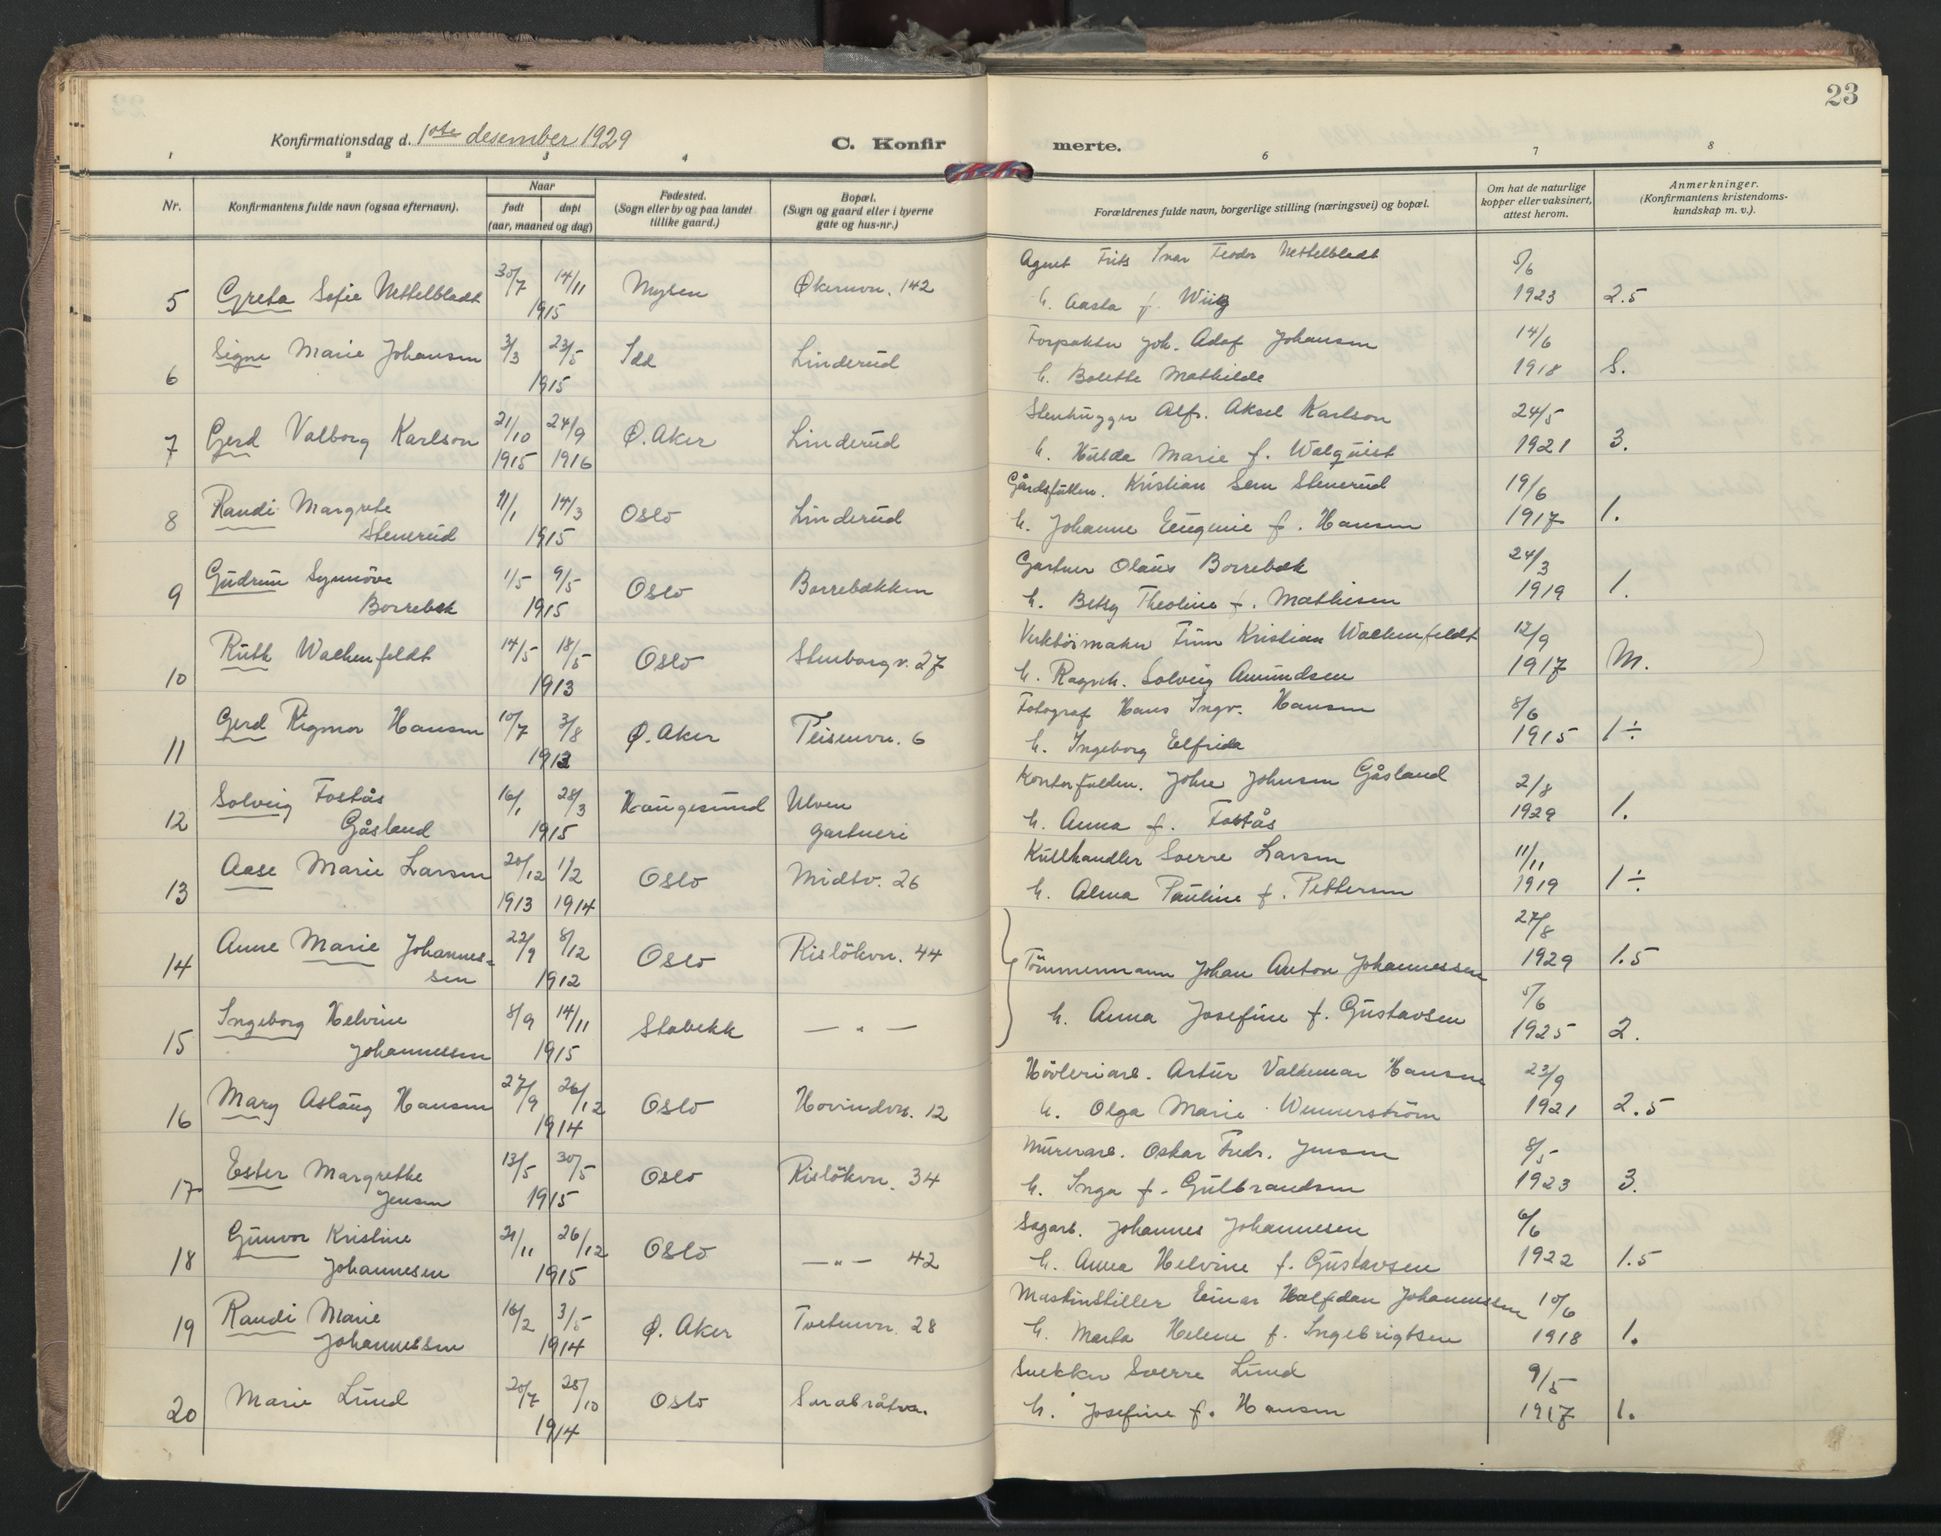 23
Konfirmationsdag d. 1ste desember 1929
C. Konfirmerte.
1 2 3 4 5 6 7 8
Nr. Konfirmantens fulde navn (ogsaa efternavn). Naar født døpt (aar, maaned og dag) Fødested. (Sogn eller by og paa landet tillike gaard.) Bopæl. (Sogn og gaard eller i byerne gate og hus-nr.) Forældrenes fulde navn, borgerlige stilling (næringsvei) og bopæl. Om hat de naturlige kopper eller vaksinert, attest herom. Anmerkninger. (Konfirmantens kristendomskundskap m. v.).
30/7 14/11 Agent Frits Ivar Teodor Nettelbladt 5/6
5 Greta Sofie Nettelbladt 1915 Mysen Økernvn. 142 h. Aasta f. Wiig 1923 2.5
Signe Marie Johansen 3/3 23/5 Idd Linderud Forpakter Joh. Adof Johansen 14/6
6 1915 h. Bolette Mathilde 1918 S.
21/10 24/9 Stenhugger Alfr. Aksel Karlson 24/5
7 Gerd Valborg Karlson 1915 1916 Ø. Aker Linderud h. Hulda Marie f. Walquist 1921 3.
Randi Margrete 11/1 14/3 Gårdsfullm. Kristian Sem Stenerud 19/6
8 Stenerud 1915 Oslo Linderud h. Johanne Eugenie f. Hansen 1917 1.
Gudrun Synnöve 1/5 9/5 Gartner Olaus Borrebæk 24/3
9 Borrebæk 1915 Oslo Borrebækken h. Betsy Theoline f. Mathisen 1919 1.
Ruth Walkenfeldt 14/5 18/5 Verktöimaker Finn Kristian Walkenfeldt 12/9
10 1913 Oslo Stenborgv. 27 h. Ragnh. Solveig Amundsen 1917 M.
Gerd Rigmor Hansen 10/7 3/8 Fotograf Hans Ingv. Hansen 8/6
11 1913 Ø. Aker Teisenvn. 6 h. Ingeborg Elfrida 1915 1÷
Solveig Fostås 16/1 28/3 Haugesund Ulven Kontorfuldm. Johse Johnsen Gåsland 2/8
12 Gåsland 1915 gartneri h. Anna f. Fostås 1929 1.
Aase Marie Larsen 20/12 1/2 Kullhandler Sverre Larsen 11/11
13 1913 1914 Oslo Midtv. 26 h. Alma Pauline f. Pettersen 1919 1÷
Anne Marie Johannes- 22/9 8/12 27/8
14 sen 1912 Oslo Rislökvn. 44 Tömmermann Johan Anton Johannessen 1929 1.5
Ingeborg Helvine 8/9 14/11 5/6
15 Johannessen 1915 Stabekk — " — h. Anna Josefine f. Gustavsen 1925 2.
27/9 26/12 Hövleriarb. Artur Valdemar Hansen 23/9
16 Mary Aslaug Hansen 1914 Oslo Hovindvn. 12 h. Olga Marie Wennerström 1921 2.5
Ester Margrethe 13/5 30/5 Murerarb. Oskar Fredr. Jensen 8/5
17 Jensen 1915 Oslo Rislökvn. 34 h. Inga f. Gulbrandsen 1923 3.
Gunvor Kristine 21/11 26/12 Sagarb. Johannes Johannesen 6/6
18 Johannesen 1915 Oslo —"— 42 h. Anna Helvine f. Gustavsen 1922 1.5
Randi Marie 16/2 3/5 Maskinstiller Einar Halfdan Johannessen 10/6
19 Johannessen 1914 Ø. Aker Tvetenvn. 28 h. Marta Helene f. Ingebrigtsen 1918 1.
Marie Lund 20/7 25/10 Snekker Sverre Lund 9/5
20 1914 Oslo Sarabråtvn. h. Josefine f. Hansen 1917 1.